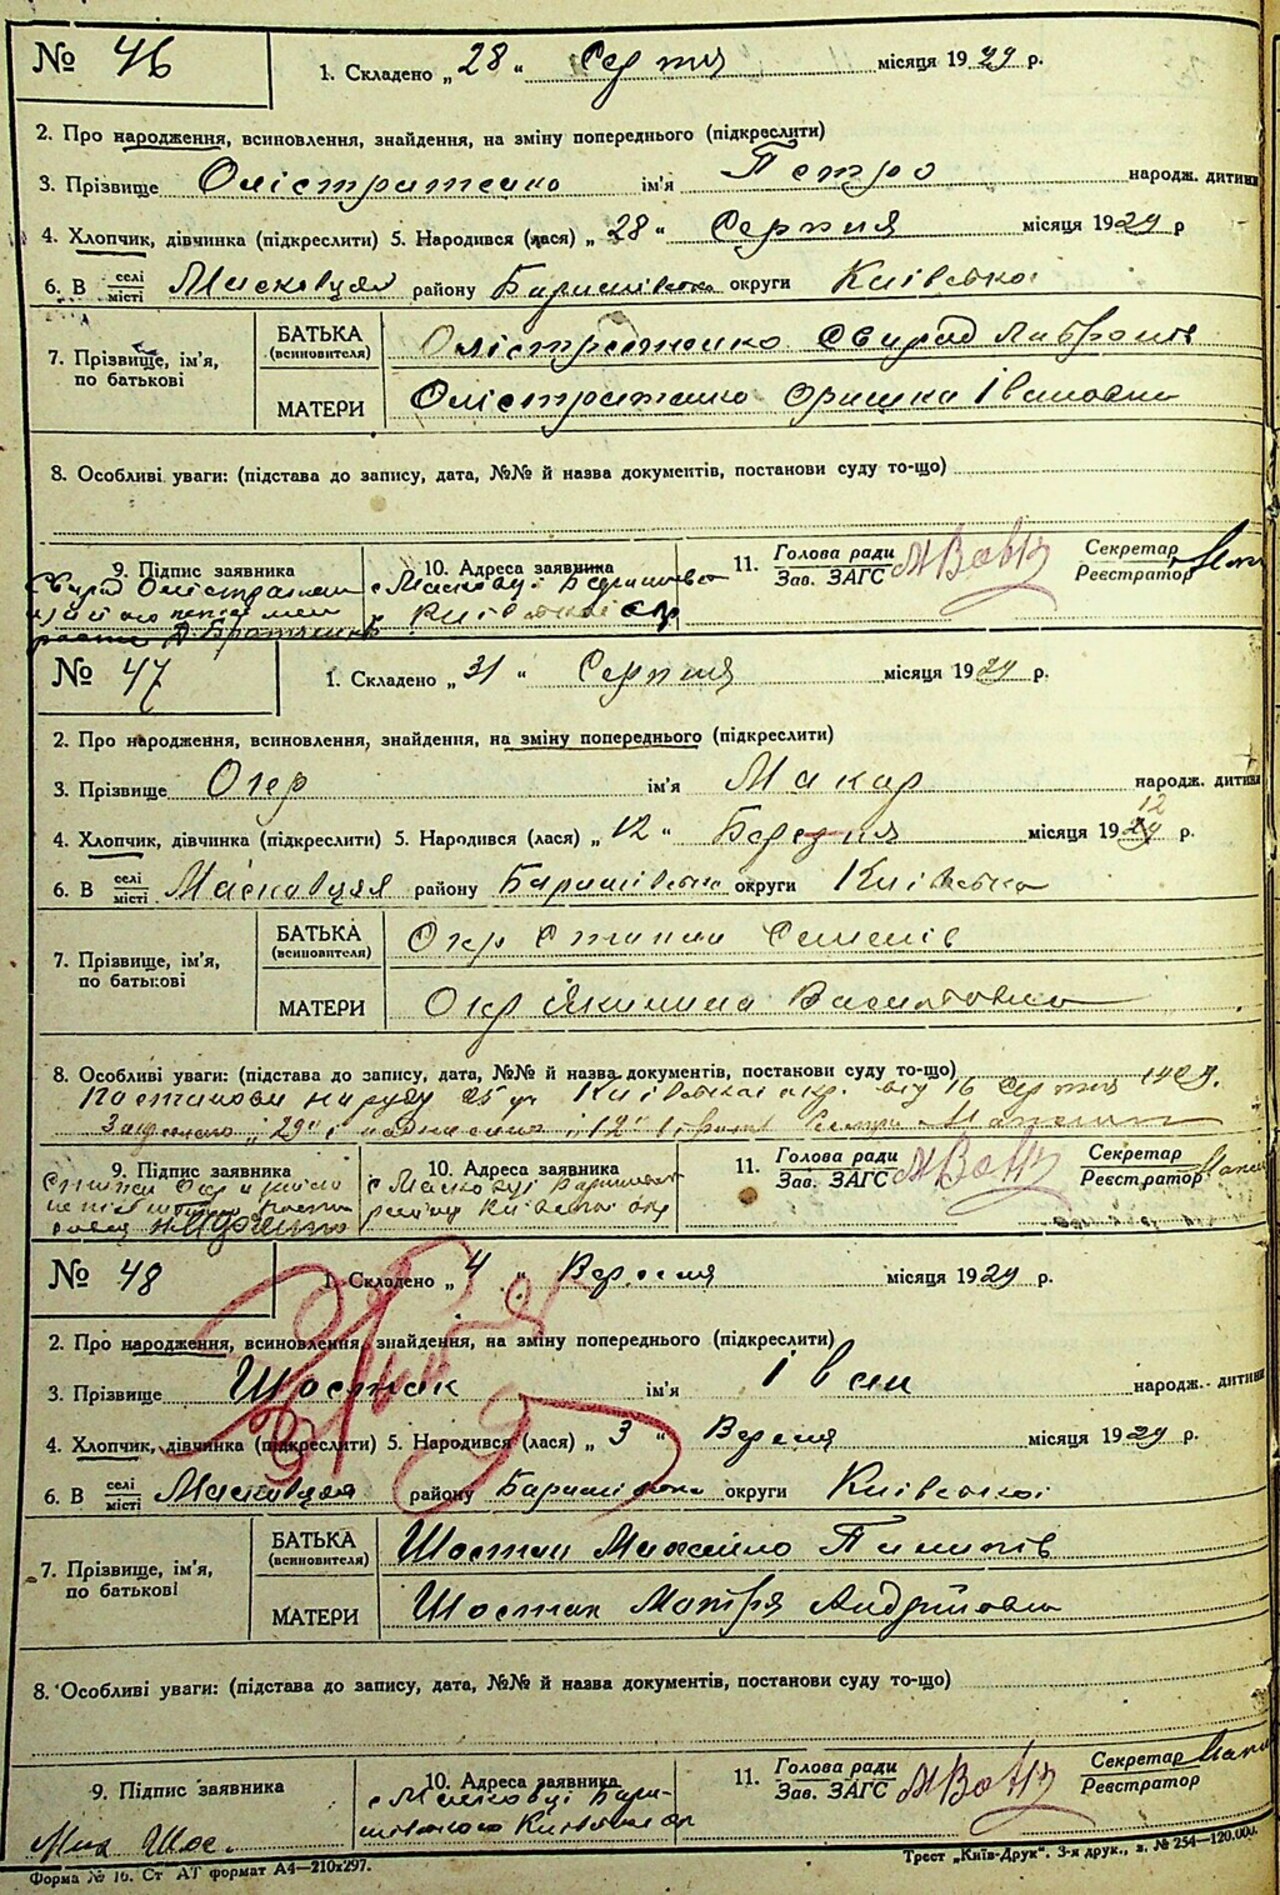 № 46
1. Складено „ 28 “ Серпня місяця 1929 р.
2. Про народження, всиновлення, знайдення, на зміну попереднього (підкреслити)
3. Прізвище Олістратенко ім'я Петро народж. дитини
4. Хлопчик, дівчинка (підкреслити) 5. Народився (лася) „ 28 “ Серпня місяця 1929 р
6. В селі місті Масковцях району Баришівсько округи Київсько
7. Прізвище, ім'я, по батькові
БАТЬКА (всиновителя) Олістратенко Свирид
МАТЕРИ Олістратенко Оришка Івановна
8. Особливі уваги: (підстава до запису, дата, №№ й назва документів, постанови суду то-що)
9. Підпис заявника
Свирид
10. Адреса заявника
с Масковці
Київської окр
11. Голова ради Зав. ЗАГС МВовк
Секретар Реєстратор
№ 47
1. Складено „ 31 “ Серпня місяця 1929 р.
2. Про народження, всиновлення, знайдення, на зміну попереднього (підкреслити)
3. Прізвище Огер ім'я Макар народж. дитини
12
4. Хлопчик, дівчинка (підкреслити) 5. Народився (лася) „ 12 “ Березня місяця 1929 р.
6. В селі місті Масковцях району Баришівсько округи Київсько
7. Прізвище, ім'я, по батькові
БАТЬКА (всиновителя) Огер Степан Семенів
МАТЕРИ Огер Якилина
8. Особливі уваги: (підстава до запису, дата, №№ й назва документів, постанови суду то-що)
Постанови нарсуду Київської окр. від 16 Серпня 1929.
„29“ і „12“
9. Підпис заявника
10. Адреса заявника
с Масковці
Київської окр
11. Голова ради Зав. ЗАГС МВовк
Секретар Реєстратор
№ 48
1. Складено „ 4 “ Вересня місяця 1929 р.
2. Про народження, всиновлення, знайдення, на зміну попереднього (підкреслити)
3. Прізвище Шостак ім'я Іван народж. дитини
4. Хлопчик, дівчинка (підкреслити) 5. Народився (лася) „ 3 “ Вересня місяця 1929 р.
6. В селі місті Масковцях району Баришівсько округи Київської
7. Прізвище, ім'я, по батькові
БАТЬКА (всиновителя) Шостак Михайло Пилипів
МАТЕРИ Шостак Мотря Андріївна
8. Особливі уваги: (підстава до запису, дата, №№ й назва документів, постанови суду то-що)
9. Підпис заявника
Мих Шос.
10. Адреса заявника
с Масковці Бари-
шівського Київської ок
11. Голова ради Зав. ЗАГС МВовк
Секретар Реєстратор
Форма № 16. Ст АТ формат А4—210x297.
Трест „Київ-Друк“. 3-я друк., з. № 254—120.000.